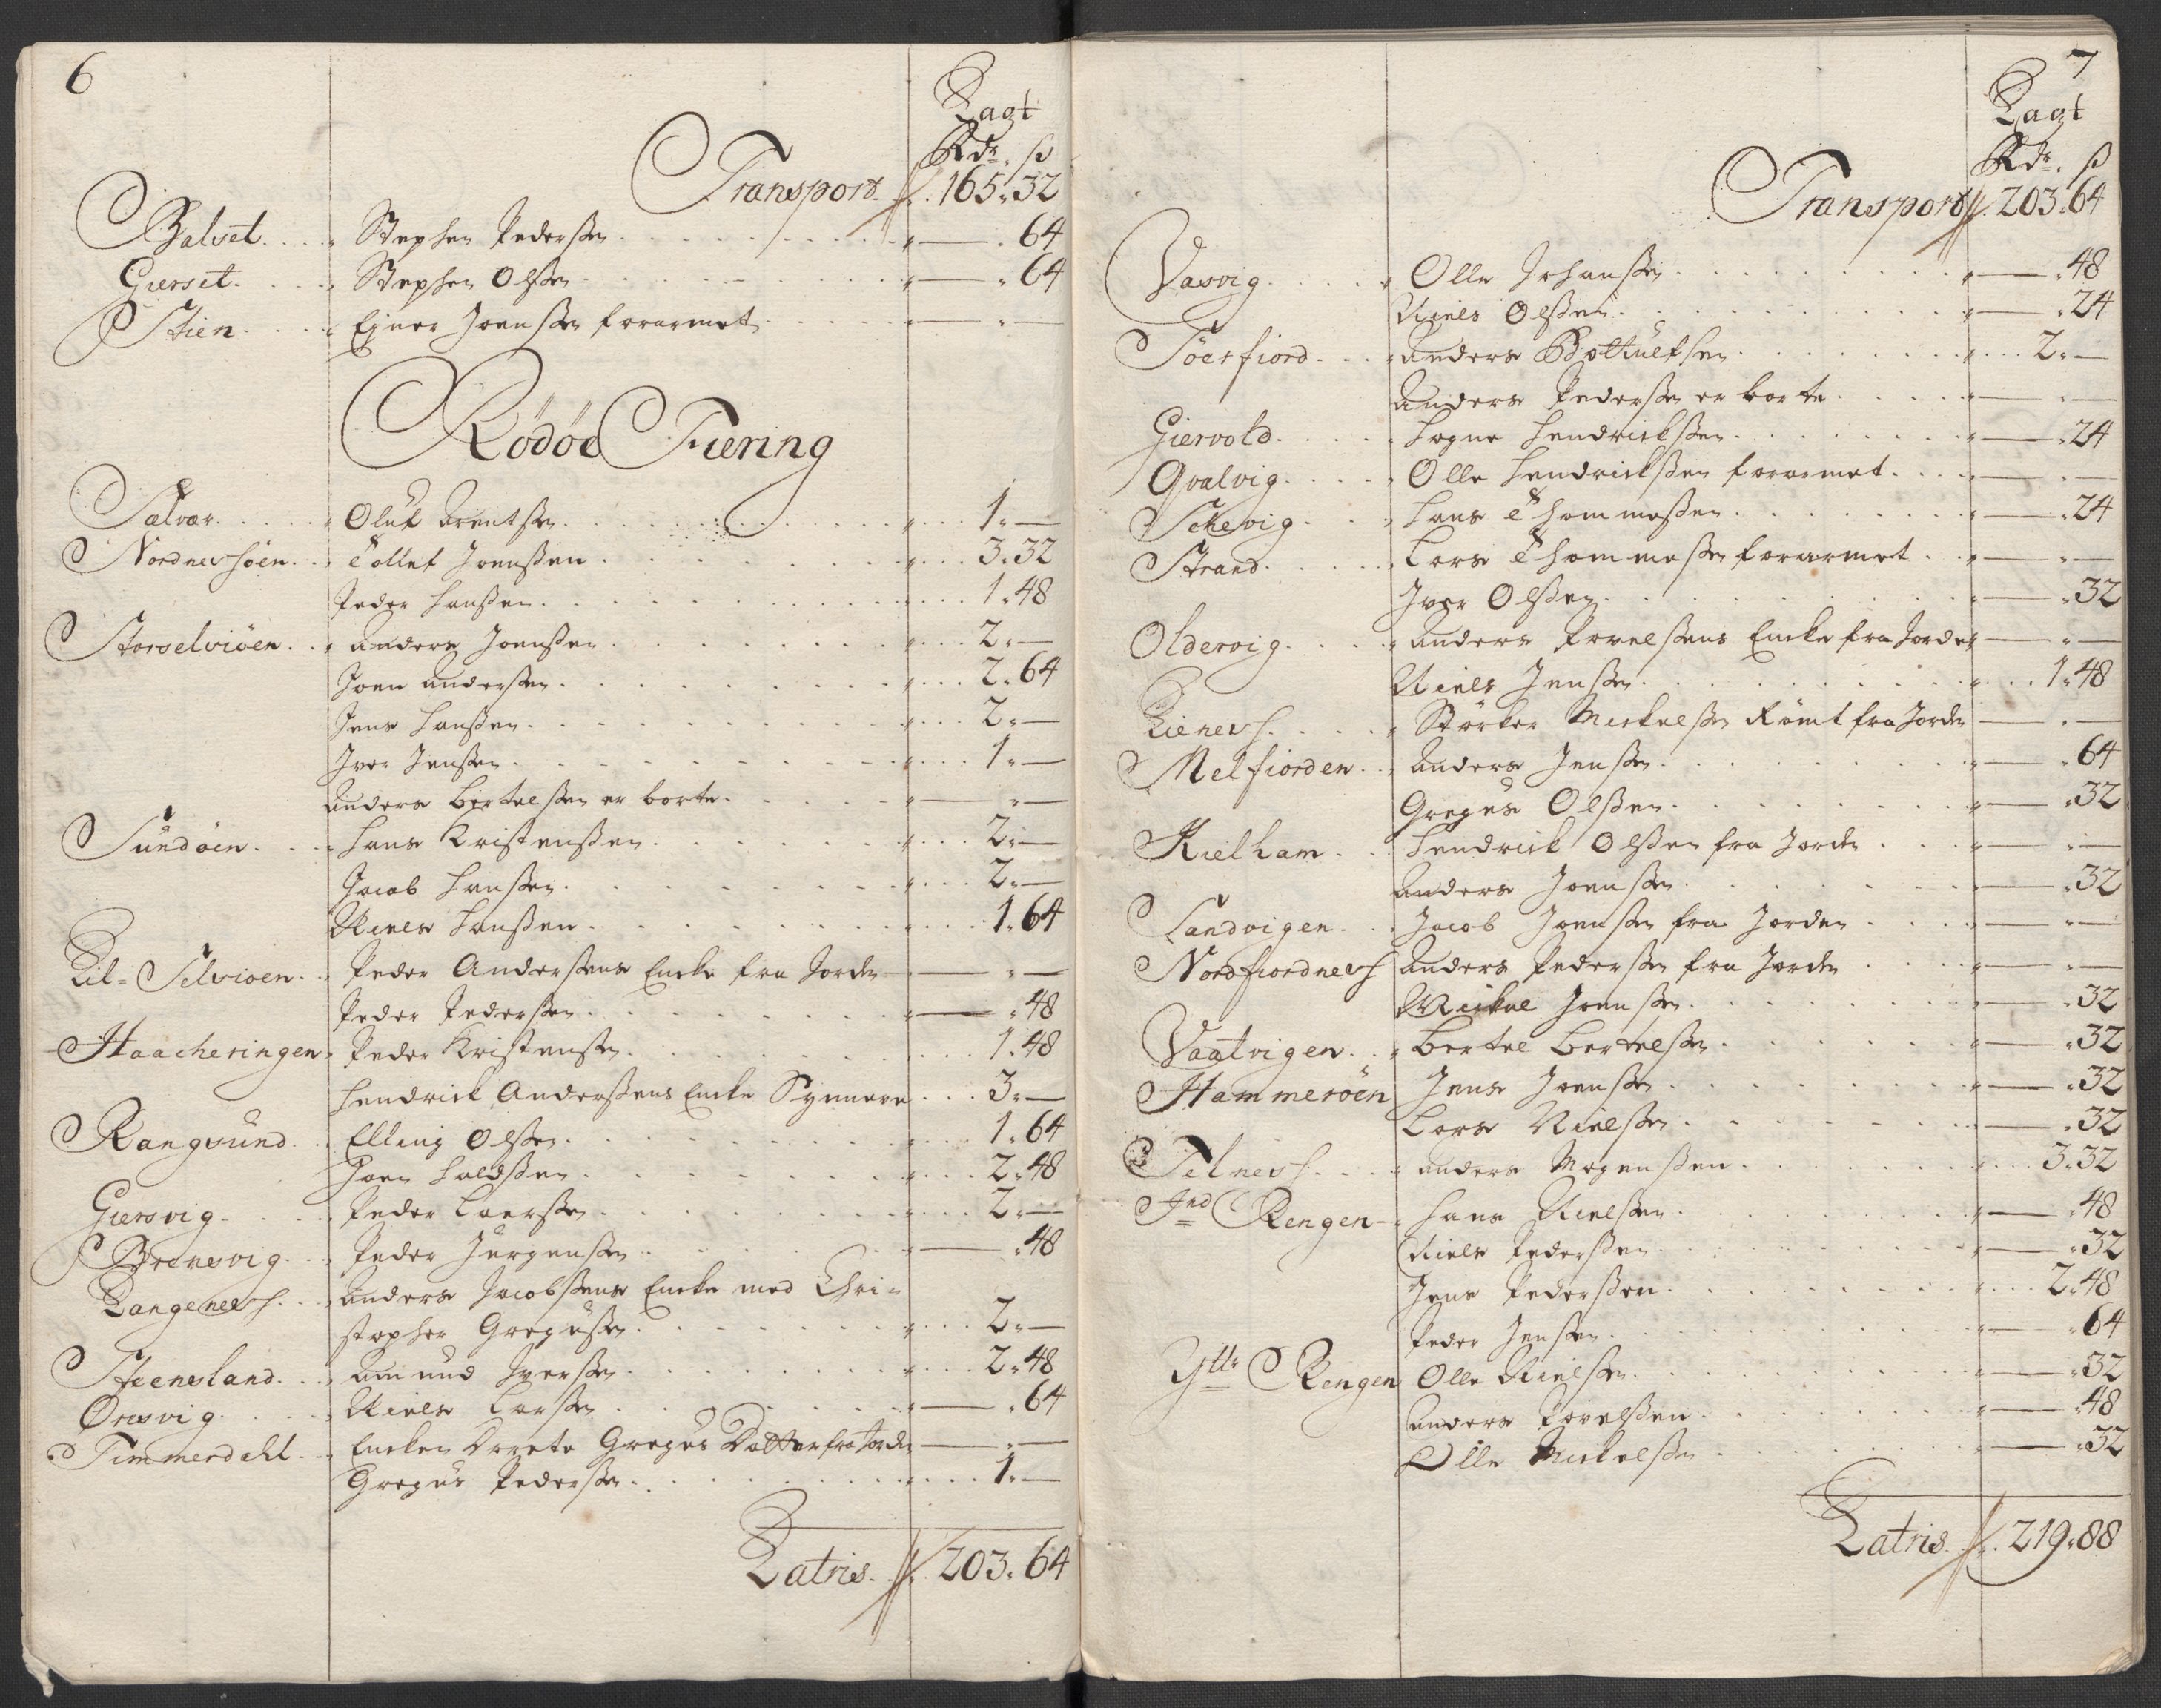 6
Lagt
Rdr. ß
Transport 165.32
Balset. Stephen Pederßen 64
Gierset. Stephen Olßen 64
Stien. Ejner Joenßen forarmet —
Rödöe Fiering
Sælvær. Oluf Arentßen 1.—
Nordneshöen. Tollef Joenßen 3.32
Peder Hanßen 1.48
Storselviöen. Anders Joenßen 2.—
Joen Anderßen 2.64
Jens Hanßen 2.—
Iver Jenßen 1.—
Anders Bertelßen er borte —
Sundöen. Hans Kristenßen 2.—
Jacob Hanßen 2.—
Niels Hanßen 1.64
Lil-Selviöen. Peder Anderßens Encke fra Jorden —
Peder Pederßen 48
Haacheringen Peder Kristenßen 1.48
Hendrick Anderßens Encke Synnove 3.—
Rangsund. Elling Olßen 1.64
Joen Haldßen 2.48
Giersvig. Peder Laerßen 2.—
Brenesvig. Peder Jørgenßen 48
Langenesh. Anders Jacobßens Encke med Chri-
stopher Gregußen 2.—
Steensland. Amund Iverßen 2.48
Oresvig. Niels Larßen 64
Timmerdahl. Encken Dorete Gregus Datter fra Jorden —
Gregus Pederßen 1.—
Latris. 203.64
7
Lagt
Rdr. ß
Transport 203.64
Vasvig. Olle Johanßen 48
Niels Olßen 24
Töesfiord. Anders Bottulfsen 2.—
Anders Pederßen er borte —
Giervold. Hogne Hendrickßen 24
Qvalvig. Olle Hendrickßen forarmet —
Schevig. Hans Thommeßen 24
Strand. Lars Thommeßen forarmet —
Iver Olßen 32
Oldervig. Anders Povelßens Encke fra Jorden —
Niels Jenßen 1.48
Lienesh. Störker Mickelßen Römt fra Jorden —
Melfiorden. Anders Jenßen 64
Gregus Olßen 32
Kielham. Hendrick Olßen fra Jorden —
Anders Joenßen 32
Sandvigen. Jacob Joenßen fra Jorden —
Nordfiordnesh Anders Pederßen fra Jorden —
Mickel Joenßen 32
Vaatvigen. Bertel Bertelßen 32
Hammeröen Jens Joenßen 32
Lars Nielßen 32
Telnesh. Anders Mogenßen 3.32
Ind Rengen Hans Nielßen 48
Niels Pederßen 32
Jens Pederßen 2.48
Peder Jenßen 64
Yttr Rengen Olle Nielßen 32
Anders Povelßen 48
Olle Mickelßen 32
Latris. 219.88